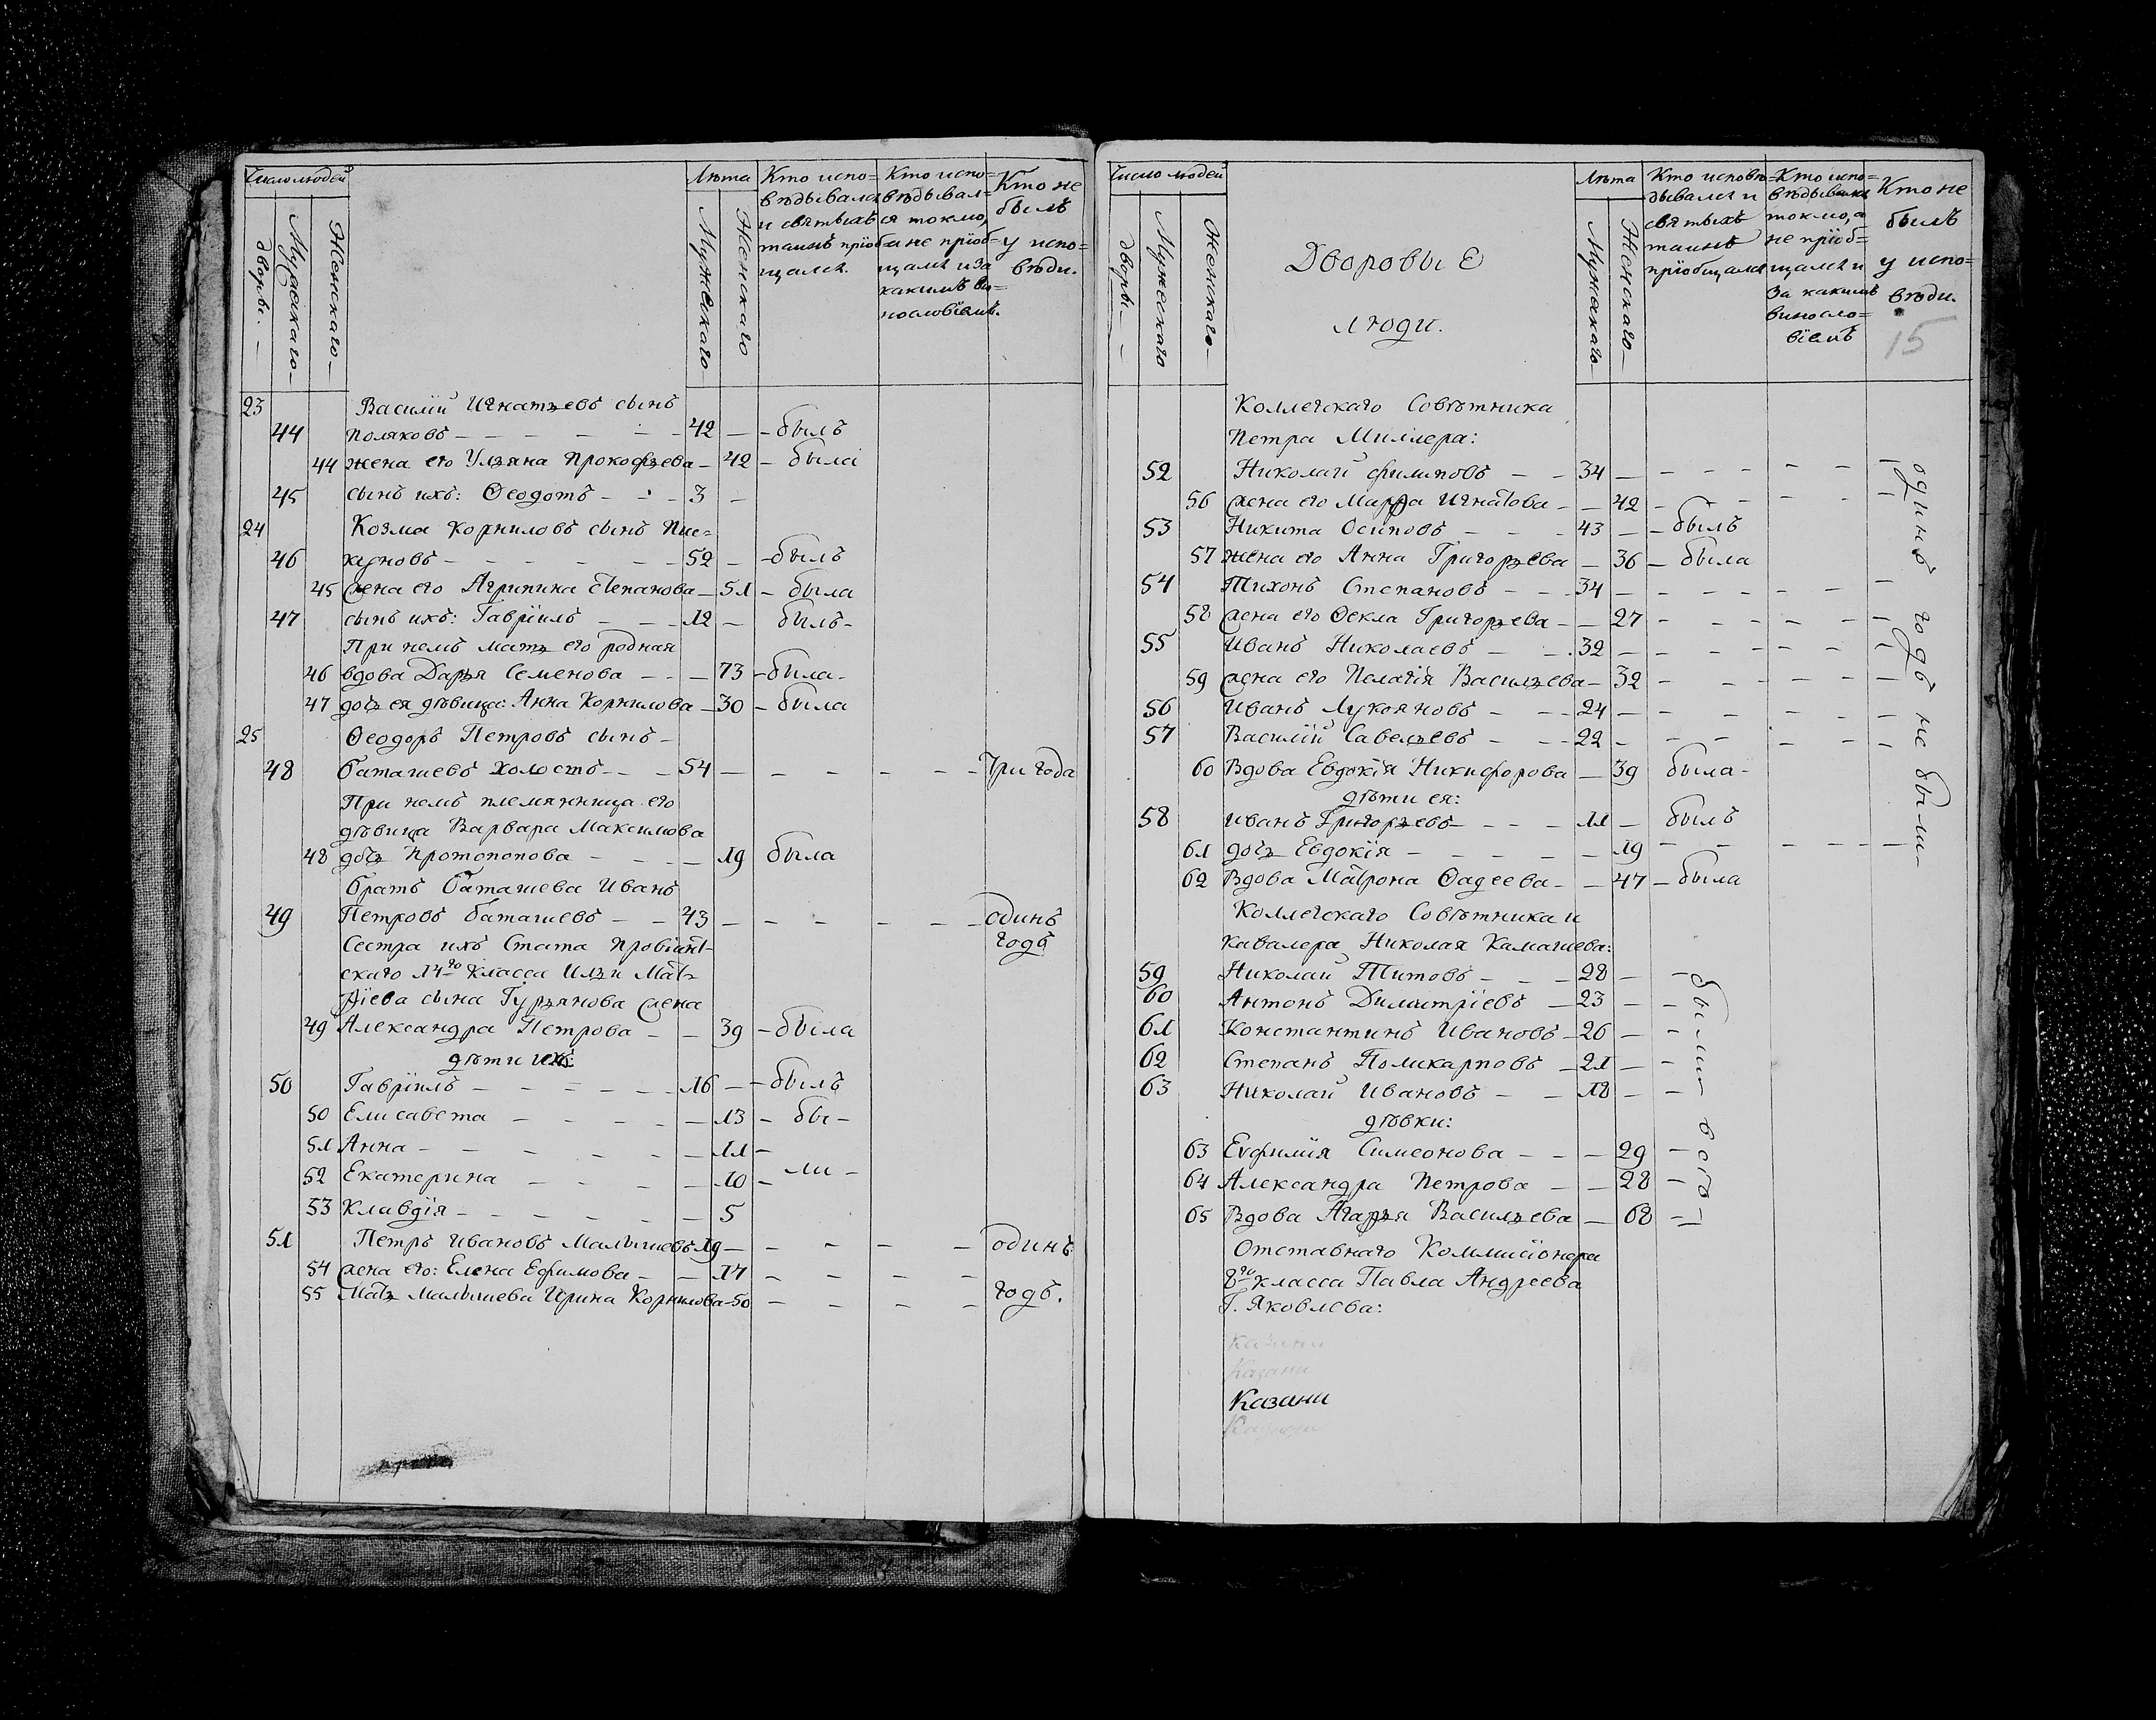 Число людей
Лѣта
Кто испо=
вѣдывался
и святыхъ
таинъ пріоб
щался.
Кто испо=
вѣдывал=
ся токмо,
а не пріоб=
щался и за
какимъ ви=
нословіемъ.
Кто не
былъ
у испо=
вѣди.
дворы.
Мужескаго
Женскаго
Мужескаго
Женскаго
23 Василій Игнатьевъ сынъ
44 Поляковъ 42 былъ
44 жена его Ульяна Прокофьева 42 была
45 сынъ ихъ: Ѳеодотъ 3
24 Козма Корниловъ сынъ Пис=
46 куновъ 52 былъ
45 жена его Агрипина Степанова 51 была
47 сынъ ихъ: Гавріилъ 12 былъ
При немъ мать его родная
46 вдова Дарья Семенова 73 была
47 дочь ея дѣвица: Анна Корнилова 30 была
25 Ѳеодоръ Петровъ сынъ
48 Баташевъ холостъ 54 Три года
При немъ племянница его
дѣвица Варвара Максимова
48 дочь Протопопова 19 была
братъ Баташева Иванъ
49 Петровъ Баташевъ 43 одинъ
годъ
Сестра ихъ Стата Провіант-
скаго 14го класса Ильи Мат-
ѳіева сына Гурьянова жена
49 Александра Петрова 39 была
дѣти ихъ:
50 Гавріилъ 16 былъ
50 Елисавета 13 бы-
51 Анна 11
52 Екатерина 10 ли
53 Клавдія 5
51 Петръ Ивановъ Малышевъ 19 одинъ
54 жена его: Елена Ефимова 17
55 Мать Малышева Ирина Корнилова 50 годъ.
Число людей
Дворовые
люди.
Лѣта
Кто исповѣ=
дывался и
святыхъ
таинъ
пріобщался
Кто испо=
вѣдывался
токмо, а
не пріоб=
щался и
за какимъ
винosло=
віемъ
Кто не
былъ
у испо=
вѣди.
15
дворы.
Мужескаго
Женскаго
Мужескаго
Женскаго
Коллегскаго Совѣтника
Петра Миллера:
52 Николай Филиповъ 34
56 жена его Марѳа Игнатова 42
53 Никита Осиповъ 43 былъ
57 жена его Анна Григорьева 36 была
54 Тихонъ Степановъ 34
58 жена его Ѳекла Григорьева 27
55 Иванъ Николаевъ 32
59 жена его Пелагія Васильева 32
56 Иванъ Лукояновъ 24
57 Василій Савельевъ 22
60 Вдова Евдокія Никифорова 39 была
дѣти ея:
58 Иванъ Григорьевъ 11 былъ
61 дочь Евдокія 19
одинъ годъ не были
62 Вдова Матрона Ѳадеева 47 была
Коллегскаго Совѣтника и
Кавалера Николая Камашева:
59 Николай Титовъ 28
60 Антонъ Димитріевъ 23
61 Константинъ Ивановъ 26
62 Степанъ Поликарповъ 21
63 Николай Ивановъ 18
дѣвки:
63 Евфимія Симеонова 29
64 Александра Петрова 28
65 Вдова Агарья Васильева 68
были
Отставнаго Коммисіонера
8го класса Павла Андреева
Г. Яковлева:
Казани
Казани
Казани
Казани